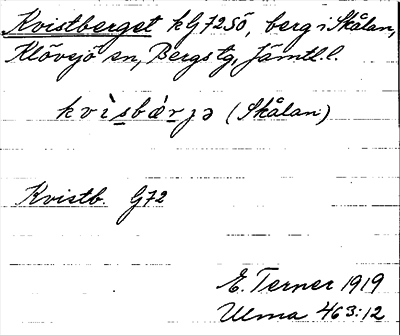 Kvistberget kG72SÖ, berg i Skålan,
Klövsjö sn, Bergs tg, Jämtl. l.
kvìsbæ̀rjə (Skålan)
Kvistb. G72
E. Terner 1919
Ulma 463:12